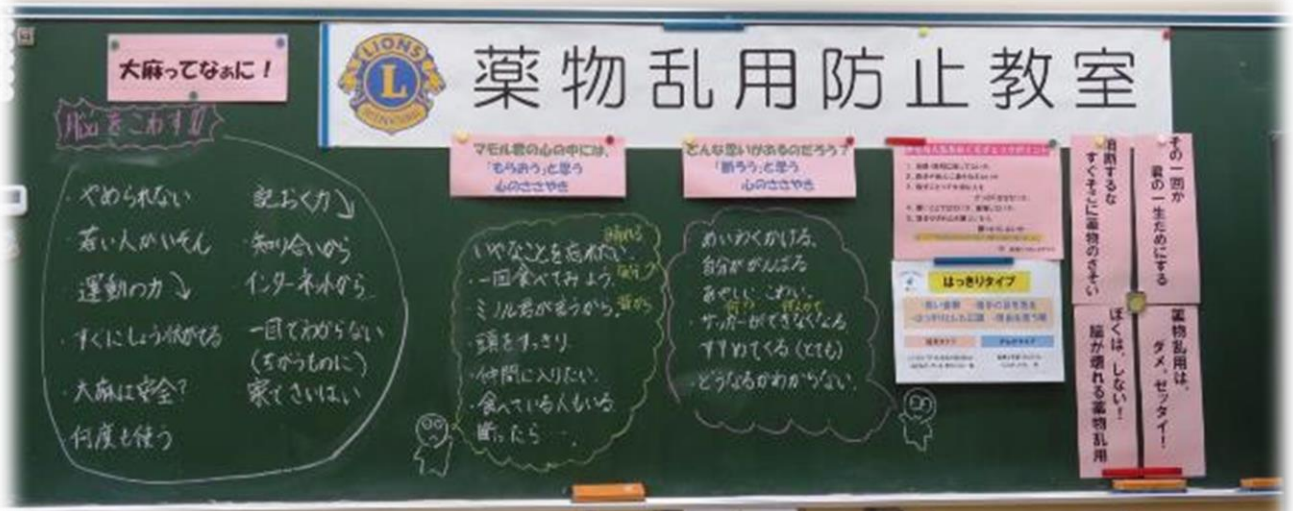 大麻ってなぁに！
LIONS
L
薬物乱用防止教室
脳をこわす!!
・やめられない
・若い人がいぞん
・運動の力↘
・すぐにしょう状がでる
・大麻は安全？
・何度も使う
記おく力↘
・知り合いから
インターネットから
一目でわからない
(ちがうものに)
家でさいばい
マモル君の心の中には、
「もらおう」と思う
心のささやき
・いやなことを忘れたい。
・一回食べてみよう。
・ミノル君が言うから。
・頭をすっきり
・仲間に入りたい。
・食べている人もいる
断ったら…。
どんな思いがあるのだろう？
「断ろう」と思う
心のささやき
・めいわくかける。
自分ががんばる
あやしい こわい
・サッカーができなくなる
すすめてくる(とても)
・どうなるかわからない。
はっきりタイプ
その一回が
君の一生だめにする
油断するな
すぐそこに薬物のさそい
薬物乱用は、
ダメ。ゼッタイ！
ぼくは、しない！
脳が壊れる薬物乱用